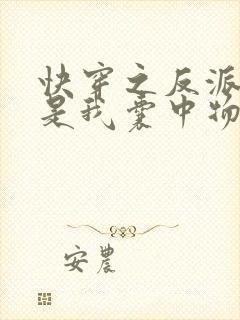 快穿之反派
是我囊中物
安农